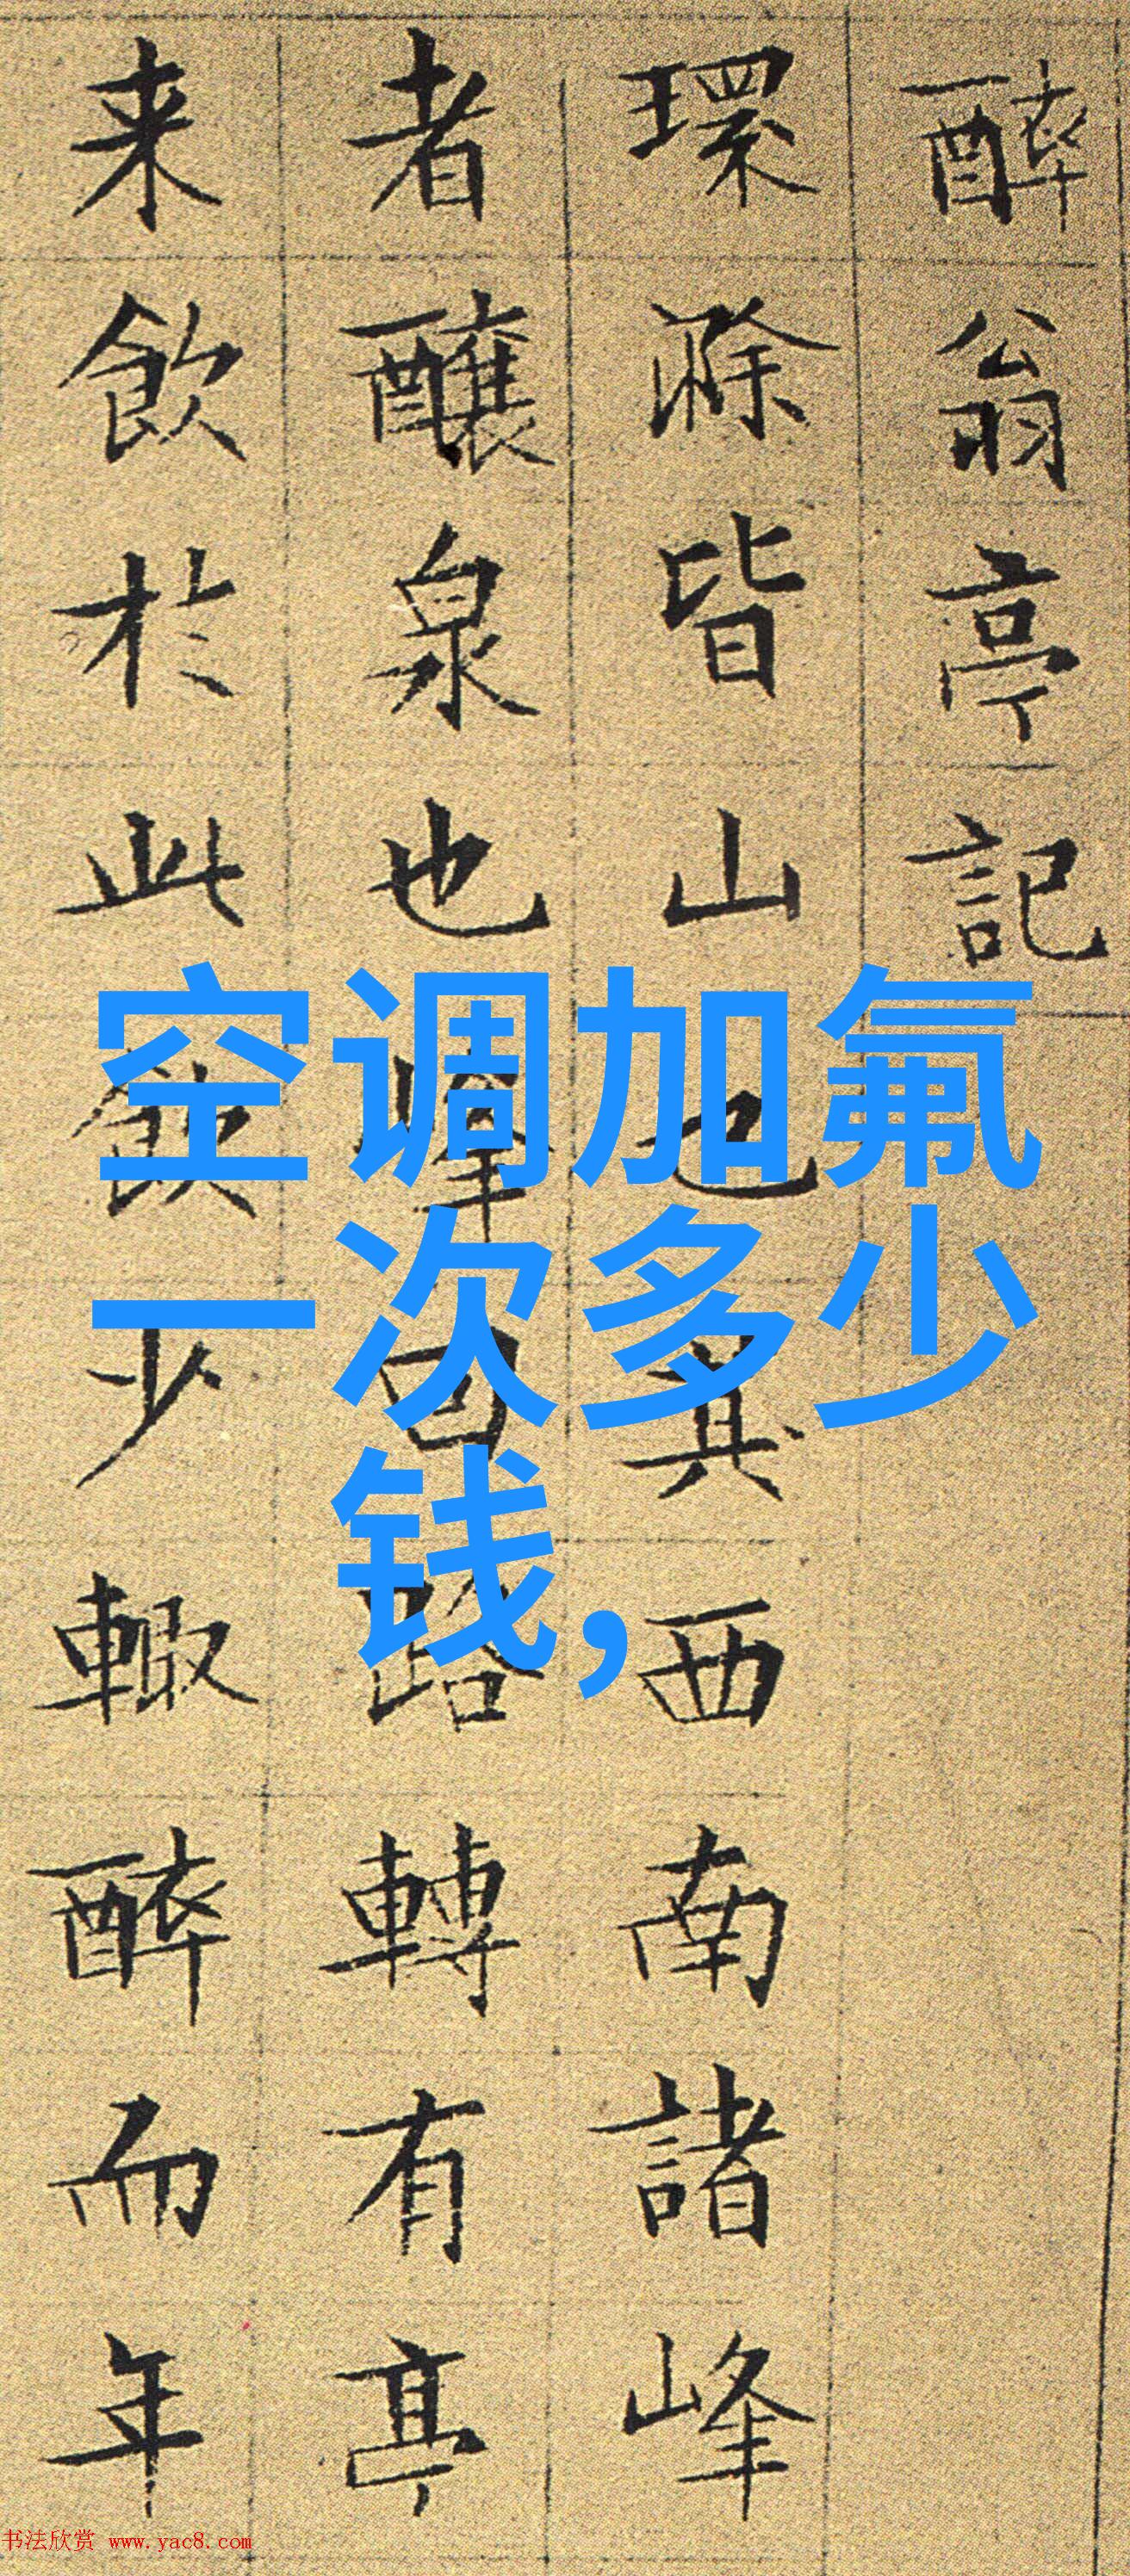 醉翁亭記
環滁皆山也其西南諸峰
者釀泉也峰回路轉有亭
来飲於此飲少輙醉而年
空调加氟
一次多少
钱,
书法欣赏 www.yac8.com